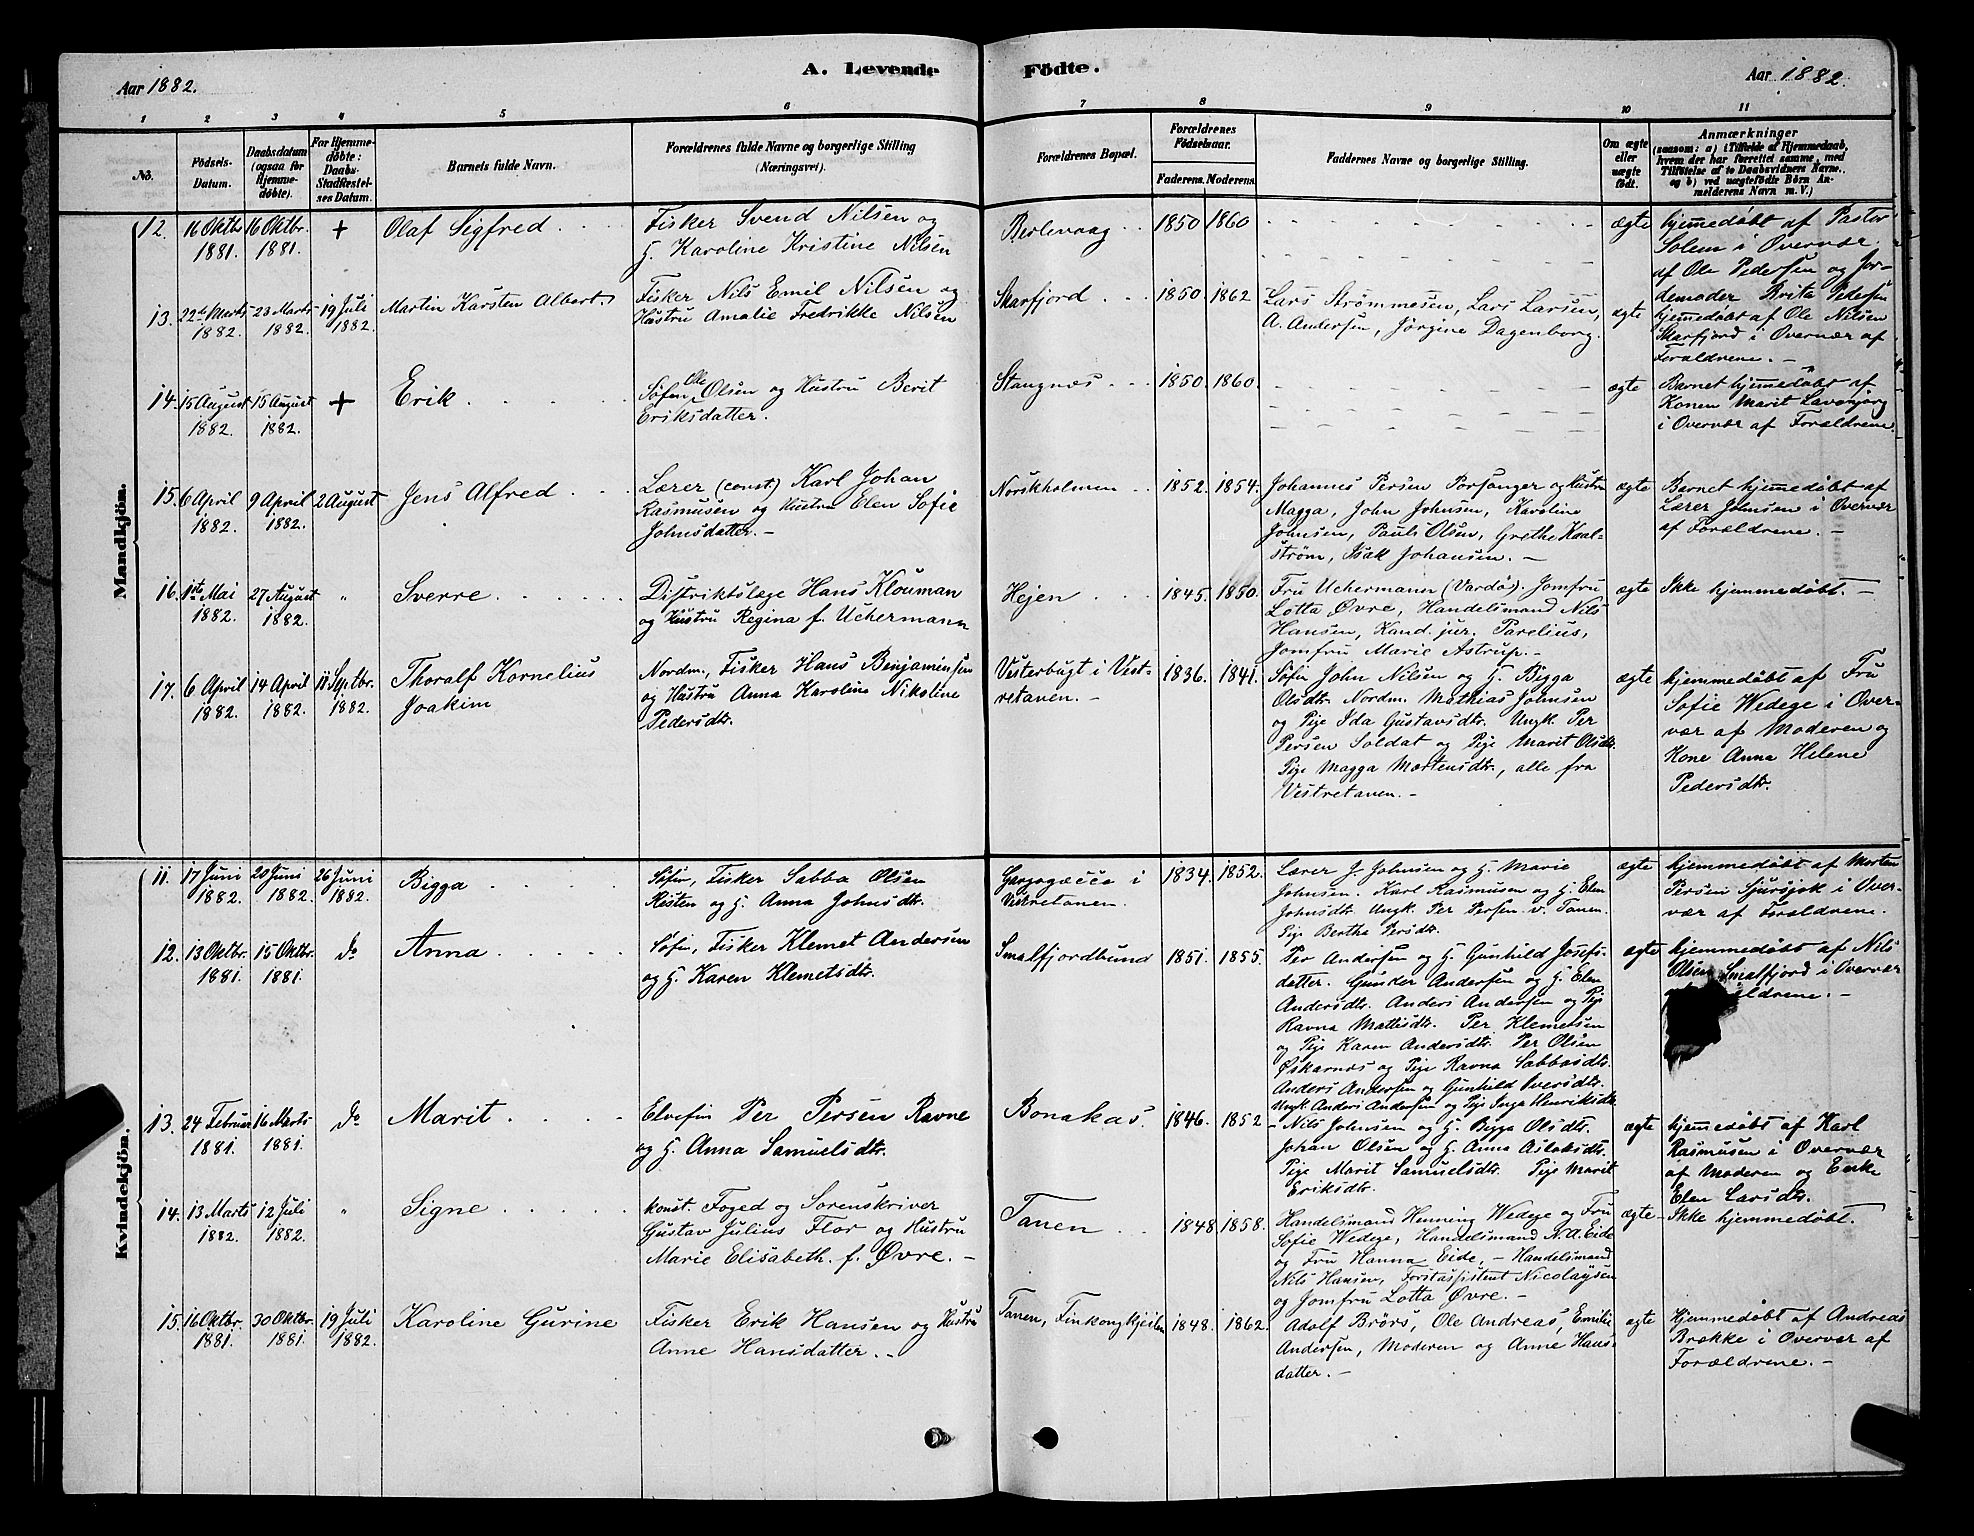 Aar 1882.
A. Levende
Födte.
Aar 1882.
1 2 3 4 5 6 7 8 9 10 11
No.
Födsels-
Datum.
Daabsdatum
(ogsaa for
Hjemme-
döbte).
For Hjemme-
döbte:
Daabs-
Stadfæstel-
ses Datum.
Barnets fulde Navn.
Forældrenes fulde Navne og borgerlige Stilling
(Næringsvei).
Forældrenes Bopæl.
Forældrenes
Födselsaar.
Faderens. Moderens.
Faddernes Navne og borgerlige Stilling.
Om ægte
eller
uægte
födt.
Anmærkninger
(saasom: a) i Tilfælde af Hjemmedaab,
hvem der har forrettet samme, med
Tilföielse af to Daabsvidners Navne,
og b) ved uægtefödte Börn An-
melderens Navn m. V.)
Mandkjön.
12. 16 Oktbr 1881. 16 Oktbr. 1881. +
Olaf Sigfred
Fisker Svend Nilsen og
H. Karoline Kristine Nilsen
Berlevaag
1850 1860
ægte
hjemmedöbt af Pastor
Solem i Overvær
af Ole Pedersen og Jor-
demoder Brita Pedersen
13. 22de Marts 1882. 23 Marts 1882. 19 Juli 1882.
Martin Karsten Albert
Fisker Nils Emil Nilsen og
Hustru Amalie Fredrikke Nilsen
Skarfjord
1850 1862
Lars Strømmesen, Lars Larsen,
A. Andersen, Jörgine Dagenborg.
ægte
hjemmedöbt af Ole Nilsen
Skarfjord i Overvær af
Forældrene. -
14. 15 August 1882. 15 August 1882. +
Erik
Söfin Ole Olsen og Hustru Berit
Eriksdatter.
Stangnæs
1850. 1860.
ægte
Barnet hjemmedöbt af
Konen Marit Lavonjarg
i Overvær af Forældrene.
15. 6 April 1882. 9 April 1882. 2 August
Jens Alfred
Lærer (const.) Karl Johan
Rasmusen og Hustru Elen Sofie
Johnsdatter. -
Norskholmen
1852. 1854.
Johannes Persen Porsanger og Hustru
Magga, John Johnsen, Karoline
Johnsen, Pauls Olsen, Grethe Kval-
ström, Isak Johansen. -
ægte
Barnet hjemmedöbt af
Lærer Johnsen i Overvær
af Forældrene. -
16. 1ste Mai 1882. 27 August 1882. "
Sverre
Distriktslæge Hans Klouman
og Hustru Regina f. Uchermann
Hejen
1845. 1850.
Fru Uchermann (Vardö). Jomfru
Lotta Øvre, Handelsmand Nils
Hansen, Kand. jur. Parelius,
Jomfru Marie Astrup. -
ægte
Ikke hjemmedöbt. -
17. 6 April 1882. 14 April 1882. 18 Septbr. 1882.
Thoralf Kornelius
Joakim
Nordm., Fisker Hans Benjaminsen
og Hustru Anna Karolina Nikoline
Pedersdtr.
Vesterbugt i Vest-
retanen. -
1836. 1841.
Söfin John Nilsen og H. Bigga
Olsdtr. Nordm. Mathias Johnsen
og Pige Ida Gustavsdtr. Ungk. Per
Persen Soldat og Pige Marit Olsdtr.
Pige Magga Mortensdtr., alle fra
Vestretanen. -
ægte
hjemmedöbt af Fru
Sofie Wedege i Over-
vær af Moderen og
Kone Anna Helene
Pedersdtr.
Kvindekjön.
11. 17 Juni 1882. 20 Juni 1882. 26 Juni 1882.
Bigga
Söfin, Fisker Sabba Olsen
Risten og H. Anna Johnsdtr.
i
Vestretanen.
1834. 1852.
Lærer J. Johnsen og H. Marie
Johnsen. Karl Rasmusen og H. Elen
Johnsdtr. Ungk. Per Persen v. Tanen.
Pige Bertha Persdtr.
ægte
hjemmedöbt af Morten
Persen Sjursjok i Over-
vær af Forældrene.
12. 13 Oktbr. 1881. 15 Oktbr. 1881. do
Anna
Söfin, Fisker Klemet Andersen
og H. Karen Klemetsdtr.
Smalfjordbund
1851. 1855.
Per Andersen og H. Gunhild Josefs-
datter. Gunder Andersen og H. Elen
Andersdtr. Anders Andersen og Pige
Ravna Mattisdtr. Per Klemetsen
og Pige Karen Andersdtr. Per Olsen
Øskarnæs og Pige Ravna Sabbasdtr.
Anders Andersen og Gunhild Iversdtr.
Ungk. Anders Andersen og Pige Inga Henriksdtr
ægte
hjemmedöbt af Nils
Olsen Smalfjord i Overvær
ældrene. -
13. 24 Februar 1881. 16 Marts 1881. do
Marit
Elvefin Per Persen Ravne
og H. Anna Samuelsdtr.
Bonakas.
1846. 1852
- Nils Johnsen og H. Bigga Olsdtr.
Johan Olsen og H. Anna Aslaksdtr.
Pige Marit Samuelsdtr. Pige Marit
Eriksdtr.
ægte
hjemmedöbt af Karl
Rasmusen i Overvær
af Moderen og Enke
Elen Larsdtr.
14. 13 Marts 1882. 12 Juli 1882. "
Signe
konst. Foged og Sorenskriver
Gustav Julius Flor og Hustru
Marie Elisabeth f. Øvre. -
Tanen
1848 1858.
Handelsmand Henning Wedege og Fru
Sofie Wedege, Handelsmand N. A. Eide
og Fru Hanna Eide, - Handelsmand
Nils Hansen, Forstassistent Nicolaysen
og Jomfru Lotta Øvre. -
ægte
Ikke hjemmedöbt.
15. 16 Oktbr. 1881. 30 Oktbr. 1881. 19 Juli 1882.
Karoline Gurine
Fisker Erik Hansen og Hustru
Anne Hansdatter. -
Tanen, Finkongkjeilen
1848. 1862.
Adolf Brörs, Ole Andreas, Emilie
Andersen, Moderen og Anne Hans-
datter. -
ægte
Hjemmedöbt af Andreas
Brække i Overvær af
Forældrene. -